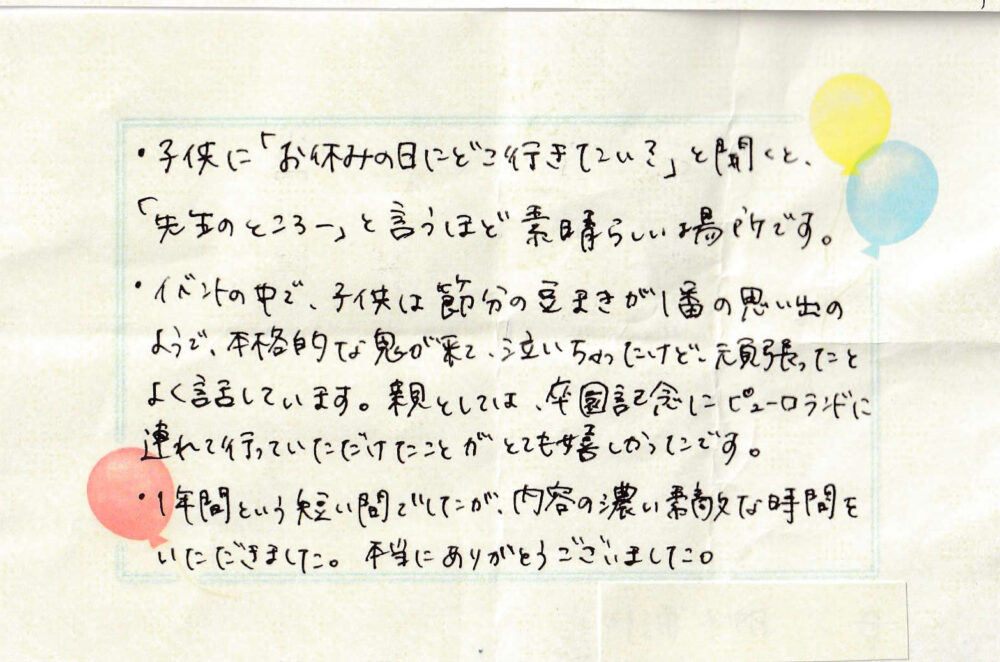 ・子供に「お休みの日にどこ行きたい？」と聞くと、
「先生のところー」と言うほど素晴らしい場所です。
・イベントの中で、子供は節分の豆まきが1番の思い出の
ようで、本格的な鬼が来て、泣いちゃったけど、頑張ったこと
よく話しています。親としては、卒園記念にピューロランドに
連れて行っていただけたことがとても嬉しかったです。
・1年間という短い間でしたが、内容の濃い素敵な時間を
いただきました。本当にありがとうございました。